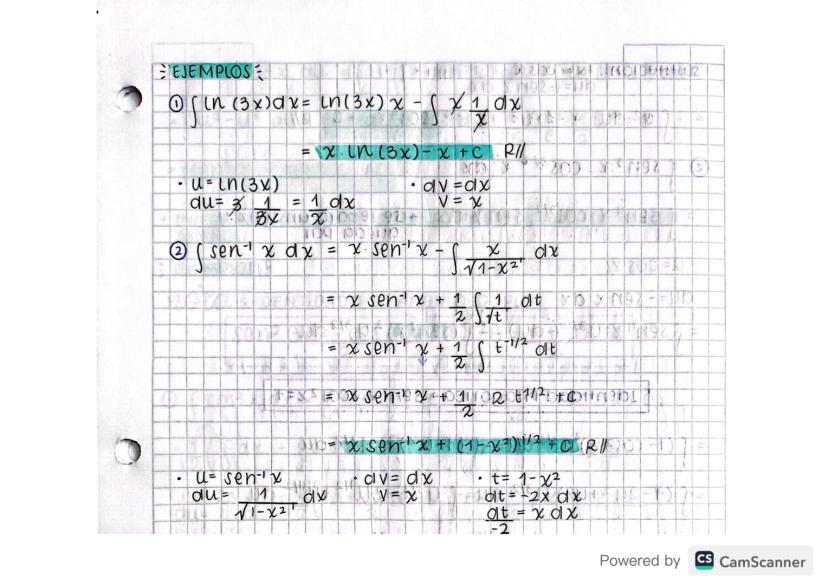 EJEMPLOS
① ∫ ln (3x)dx = ln(3x) x - ∫ x 1/x dx
= x ln (3x) - x + c R//
• u = ln(3x) • dv = dx
du = 3 1/3x = 1/x dx v = x
② ∫ sen⁻¹ x dx = x · sen⁻¹ x - ∫ x/√1-x² dx
= x sen⁻¹ x + 1/2 ∫ 1/√t dt
= x sen⁻¹ x + 1/2 ∫ t⁻¹/² dt
= x sen⁻¹ x + 1/2 · 2 t¹/² + c
= x sen⁻¹ x + (1-x²)¹/² + c R//
• u = sen⁻¹ x • dv = dx • t = 1-x²
du = 1/√1-x² dx v = x dt = -2x dx
dt/-2 = x dx
Powered by CS CamScanner